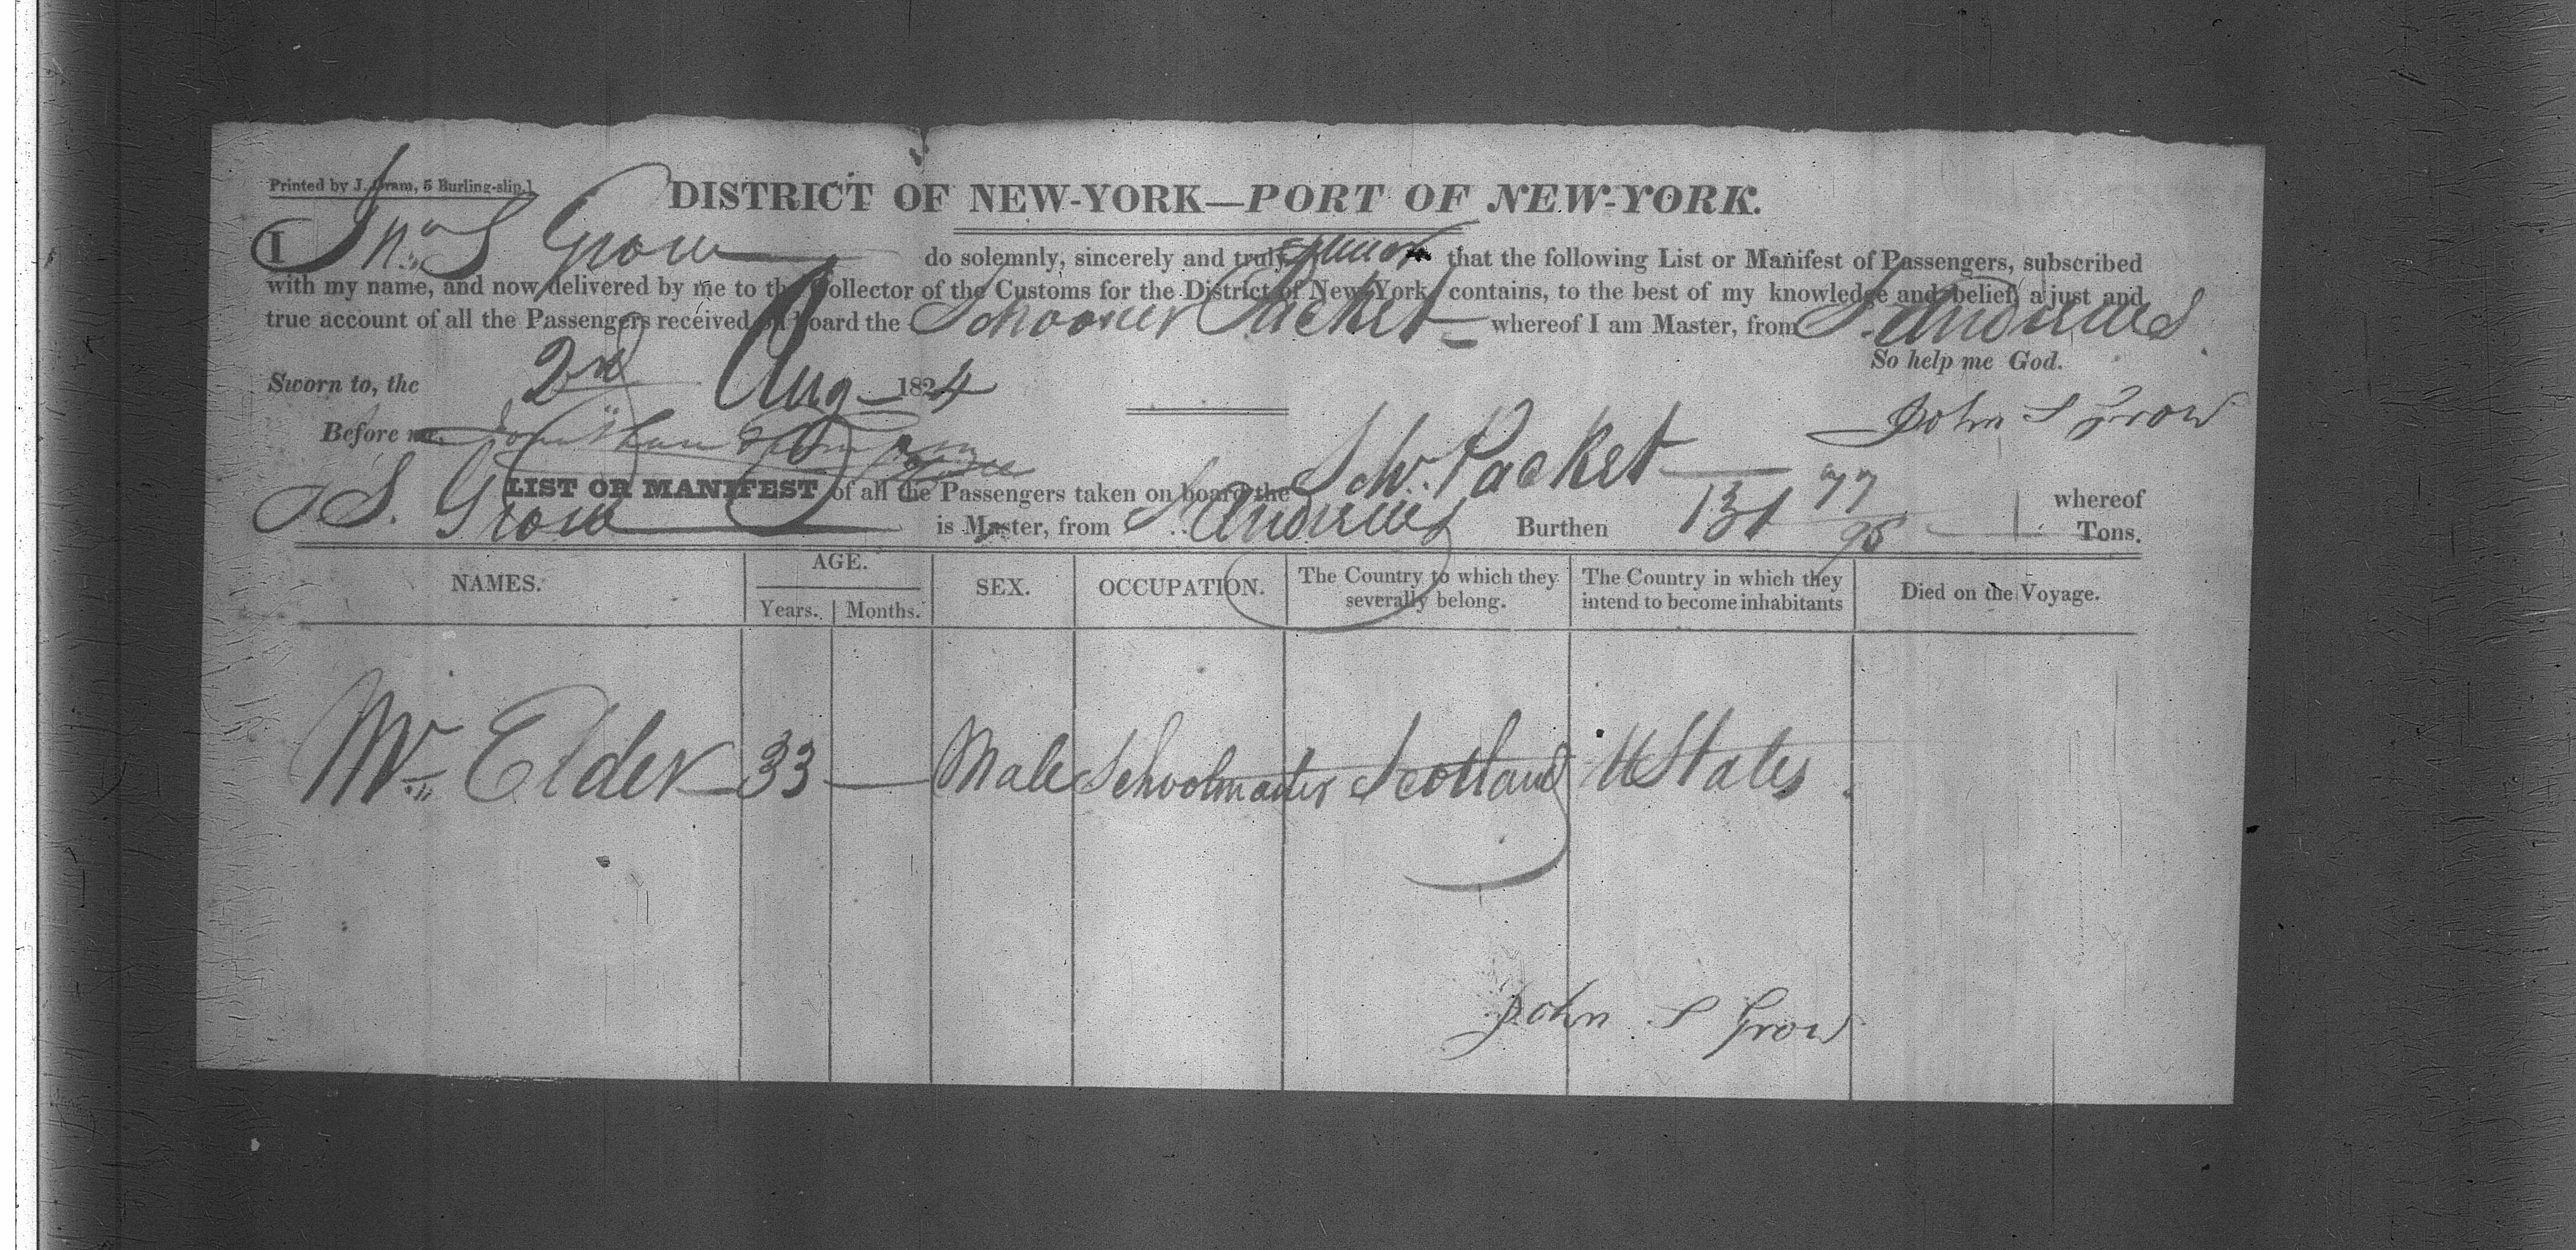 Printed by J. Gram, 5 Burling-slip.]
DISTRICT OF NEW-YORK—PORT OF NEW-YORK.
I Jno S Grow do solemnly, sincerely and truly swear that the following List or Manifest of Passengers, subscribed
with my name, and now delivered by me to the Collector of the Customs for the District of New-York, contains, to the best of my knowledge and belief, a just and
true account of all the Passengers received on board the Schooner Packet whereof I am Master, from St. Andrews
So help me God.
Sworn to, the 2nd Aug 1824
John S Grow
Before me, Jonathan Thompson
LIST OR MANIFEST of all the Passengers taken on board the Schr. Packet whereof
J S. Grow is Master, from St. Andrews Burthen 131 77/95 Tons.
NAMES. AGE. Years. Months. SEX. OCCUPATION. The Country to which they severally belong. The Country in which they intend to become inhabitants Died on the Voyage.
Mr Elder 33 — Male Schoolmaster Scotland UStates
John S Grow